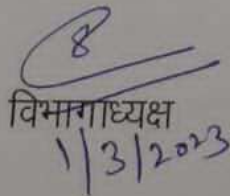 विभागाध्यक्ष
1/3/2023